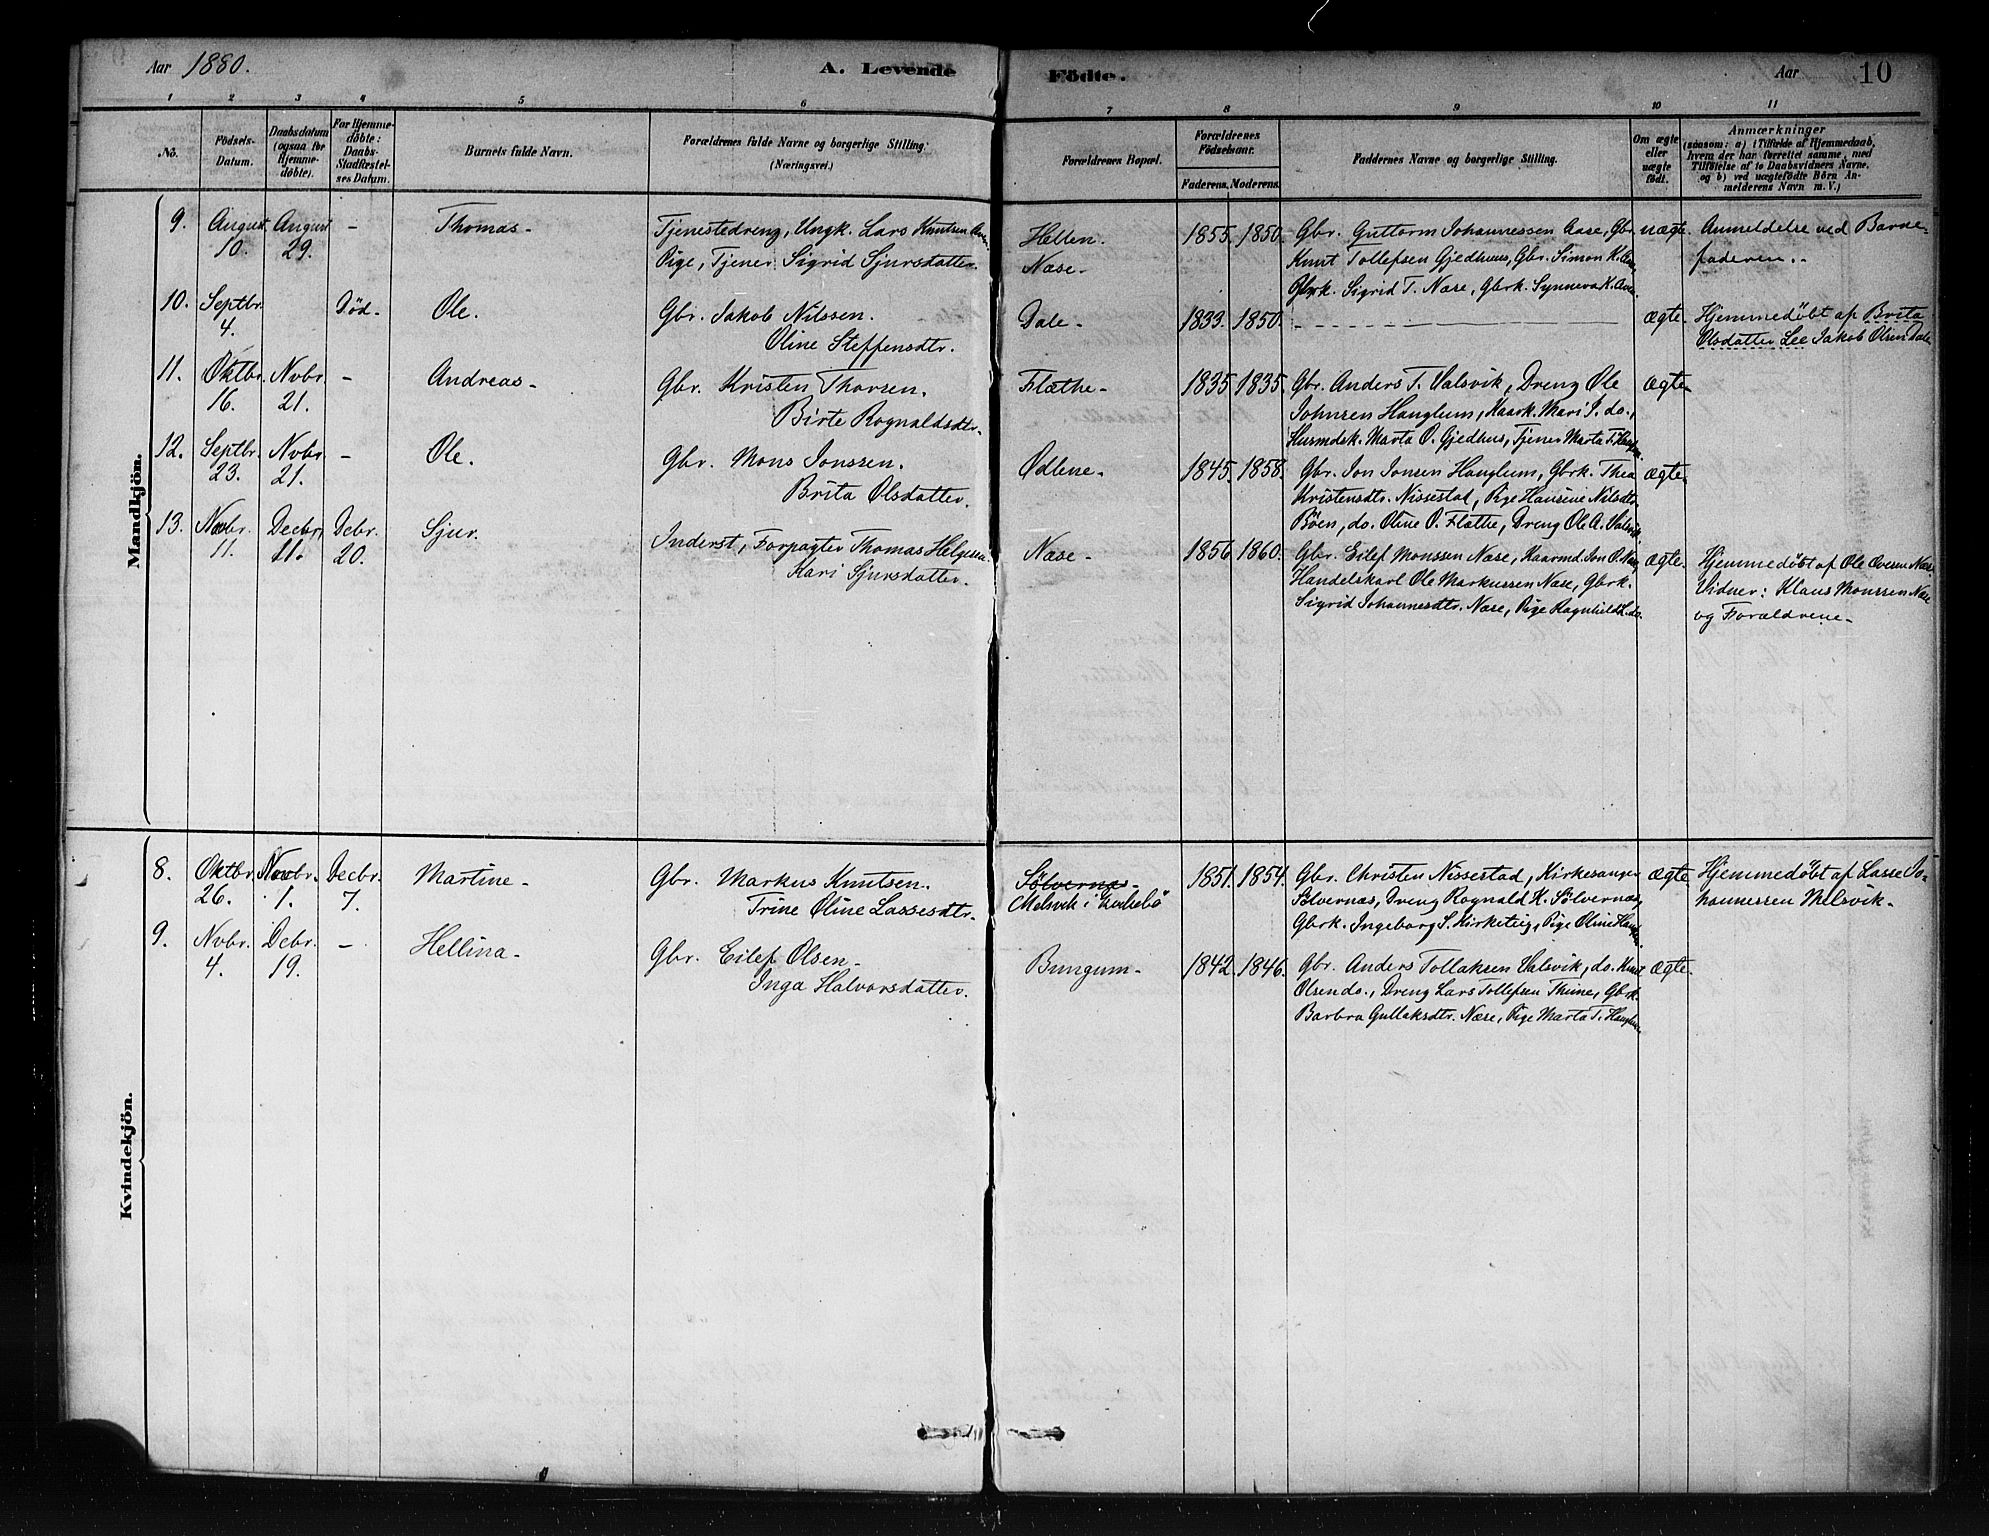 Aar 1880. A. Levende Fødte. Aar 10
1 2 3 4 5 6 7 8 9 10 11
No. Födsels-Datum. Daabsdatum (ogsaa for Hjemmedöbte). For Hjemmedöbte: Daabs-Stadfæstelses Datum. Barnets fulde Navn. Forældrenes fulde Navne og borgerlige Stilling. (Næringsvei.) Forældrenes Bopæl. Forældrenes Födselsaar. Faderens. Moderens. Faddernes Navne og borgerlige Stilling. Om ægte eller uægte født.
Anmærkninger
(saasom: a) i Tilfælde af Hjemmedaab,
hvem der har forrettet samme, med
Tilföielse af to Daabsvidners Navne,
og b) ved uægtefödte Börn Anmelderens Navn m. V.)
Mandkjön.
9. August August - Thomas- Tjenestedreng, Ungk. Lars Knutsen Hellen. 1855. 1850. Gbr. Guttorm Johannessen Aase, Gbr. uægte. Anmeldelse ved Barne-
10. 29. Pige, Tjener Sigrid Sjursdatter. Næse- Knut Tollefsen Gjedhus, Gbr. Simon K. faderen.-
Gbrk. Sigrid T. Næse, Gbrk. Synneva K.
10. Septbr. Död- Ole. Gbr. Jakob Nilssen. Dale- 1833. 1850. - ægte- Hjemmedøbt af Brita
4. Oline Steffensdtr. Olsdatter Lee Jakob Olsen Dale
11. Oktbr. Nvbr. - Andreas- Gbr. Kristen Thorsen. Flæthe- 1835. 1835. Gbr. Anders T. Valsvik, Dreng Ole ægte-
16. 21. Birte Rognaldsdtr- Johnsen Hauglum, Kaark. Mari J. do.,
Husmdsk. Marta O. Gjedhus, Tjener Marta
12. Septbr. Nvbr. - Ole. Gbr. Mons Jonssen. Ødlene- 1845. 1858. Gbr. Jon Jonsen Hauglum, Gbrk. Thea ægte-
23. 21. Brita Olsdatter. Kristensdtr. Nissestad, Pige Hansine Nilsdtr.
Böen, do. Oline O. Flæthe, Dreng Ole A. Valsvik
13. Novbr. Decbr. Debr. Sjur. Inderst, Forpagter Thomas Helgesen Næse- 1856. 1860. Gbr. Eilef Monssen Næse, Kaarmd. Jon O. ægte- Hjemmedøbt af Ole Næse
11. 11. 20. Kari Sjursdatter. Handelskarl Ole Markussen Næse, Gbrk. Vidner: Klaus Monssen Næse
Sigrid Johannesdtr. Næse, Pige Ragnhild L. do. og Forældrene-
Kvindekjön.
8. Oktbr. Novbr. Decbr. Martine- Gbr. Markus Knutsen. Sölvernæs- 1851. 1854. Gbr. Christen Nissestad, Kirkesanger ægte Hjemmedøbt af Lasse Jo-
26. 1. 7. Trine Oline Lassesdtr. Melsvik i Evdebö Sölvernæs, Dreng Rognald K. Sölvernæs, hannessen Melsvik-
Gbrk. Ingeborg S. Kirketeig, Pige Oline
9. Nvbr. Debr. - Hellina- Gbr. Eilef Olsen- Bungum- 1842. 1846. Gbr. Anders Tollaksen Valsvik, do. Knut ægte-
4. 19. Inga Halvorsdatter. Olsen do., Dreng Lars Tollefsen Thune, Gbrk.
Barbra Gullaksdtr. Næse, Pige Marta T.